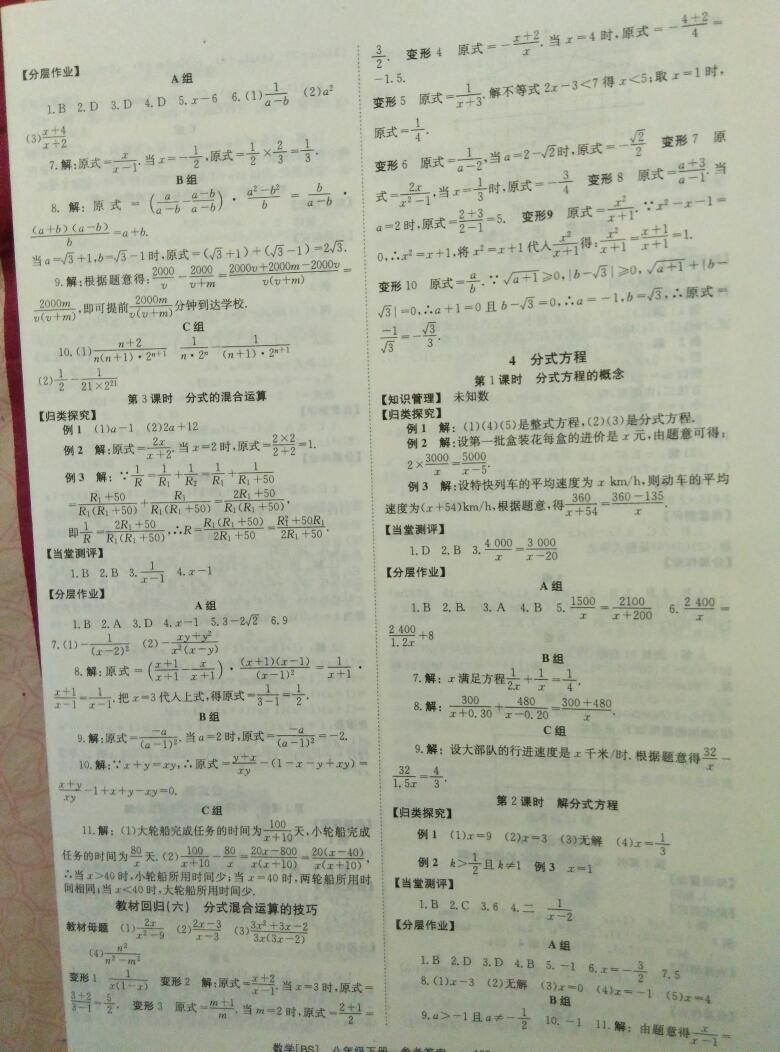 【分层作业】
A 组
1.B 2.D 3.D 4.D 5.x-6 6.(1)1/(a-b) (2)a²
(3)(x+4)/(x+2)
7.解:原式=x/(x-1).当x=-1/2,原式=1/2×2/3=1/3.
B 组
8. 解:原式=(a/(a-b)-(a-b)/(a-b))·(a²-b²)/b=b/(a-b)·
(a+b)(a-b)/b=a+b.
当a=√3+1,b=√3-1时,原式=(√3+1)+(√3-1)=2√3.
9.解:根据题意得:2000/v-2000/(v+m)=(2000v+2000m-2000v)/(v(v+m))=
2000m/(v(v+m)),即可提前2000m/(v(v+m))分钟到达学校.
C 组
10.(1)(n+2)/(n(n+1)·2ⁿ⁺¹) 1/(n·2ⁿ)-1/((n+1)·2ⁿ⁺¹)
(2)1/2-1/(21×2²¹)
第3课时 分式的混合运算
【归类探究】
例1 (1)a-1 (2)2a+12
例2 解:原式=2x/(x+2).当x=2时,原式=(2×2)/(2+2)=1.
例3 解:∵1/R=1/R₁+1/R₂=1/R₁+1/(R₁+50)
=(R₁+50)/(R₁(R₁+50))+R₁/(R₁(R₁+50))=(2R₁+50)/(R₁(R₁+50)),
即1/R=(2R₁+50)/(R₁(R₁+50)),∴R=R₁(R₁+50)/(2R₁+50)=(R₁²+50R₁)/(2R₁+50).
【当堂测评】
1.B 2.B 3.1/(x-1) 4.x-1
【分层作业】
A 组
1.B 2.A 3.D 4.x-1 5.3-2√2 6.9
7.(1)-1/(x-2)² (2)-(xy+y²)/(x²(x-y))
8.解:原式=((x+1)/(x+1)-x/(x+1))·(x+1)(x-1)/(x-1)²=1/(x+1)·
(x+1)/(x-1)=1/(x-1).把x=3代入上式,得原式=1/(3-1)=1/2.
B 组
9.解:原式=-a/(a-1)².当a=2时,原式=-a/(a-1)²=-2.
10.解:∵x+y=xy,∴原式=(y+x)/xy-(1-x-y+xy)=
(x+y)/xy-1+x+y-xy=0.
C 组
11.解:(1)大轮船完成任务的时间为100/(x+10)天,小轮船完成
任务的时间为80/x天.(2)100/(x+10)-80/x=(20x-800)/(x(x+10))=20(x-40)/(x(x+10)),
∴当x>40时,小轮船所用时间少;当x=40时,两轮船所用时
间相同;当x<40时,大轮船所用时间少.
教材回归(六) 分式混合运算的技巧
教材母题 (1)2x/(x²-9) (2)(2x-3)/(x-3) (3)(3x²+3x-2)/(3x(3x-2))
(4)n²/(n²-m²)
变形1 1/(x(1-x)) 变形2 解:原式=(x+2)/(x-1).当x=3时,原式=
(3+2)/(3-1)=5/2. 变形3 原式=(m+1)/m.当m=2时,原式=(2+1)/2=
3/2. 变形4 原式=-(x+2)/x.当x=4时,原式=-(4+2)/4=
-1.5.
变形5 原式=1/(x+3).解不等式2x-3<7得x<5;取x=1时,
原式=1/4.
变形6 原式=1/(a-2),当a=2-√2时,原式=-√2/2 变形7 原
式=2x/(x²-1),当x=1/3时,原式=-3/4 变形8 原式=(a+3)/(a-1).当
a=2时,原式=(2+3)/(2-1)=5. 变形9 原式=x²/(x+1).∵x²-x-1=
0,∴x²=x+1,将x²=x+1代入x²/(x+1)得:x²/(x+1)=(x+1)/(x+1)=1.
变形10 原式=a/b.∵√(a+1)≥0,|b-√3|≥0,√(a+1)+|b-
√3|=0,∴a+1=0且b-√3=0,∴a=-1,b=√3,∴原式=
-1/√3=-√3/3.
4 分式方程
第1课时 分式方程的概念
【知识管理】 未知数
【归类探究】
例1 解:(1)(4)(5)是整式方程,(2)(3)是分式方程.
例2 解:设第一批盒装花每盒的进价是x元,由题意可得:
2×3000/x=5000/(x-5).
例3 解:设特快列车的平均速度为x km/h,则动车的平均
速度为(x+54)km/h,根据题意,得360/(x+54)=(360-135)/x.
【当堂测评】
1.D 2.B 3.4 000/x=3 000/(x-20)
【分层作业】
A 组
1.B 2.B. 3.A 4.B 5.1500/x=2100/(x+200) 6.2 400/x=
2 400/1.2x+8
B 组
7.解:x满足方程1/2x+1/x=1/4.
8.解:300/(x+0.30)+480/(x-0.20)=(300+480)/x.
C 组
9.解:设大部队的行进速度是x千米/时.根据题意得32/x-
32/1.5x=4/3.
第2课时 解分式方程
【归类探究】
例1 (1)x=9 (2)x=3 (3)无解 (4)x=1/3
例2 k>1/2且k≠1 例3 x=1
【当堂测评】
1.B 2.C 3.6 4.二 1/(x-2)
【分层作业】
A 组
1.B 2.D 3.D 4.B 5.-1 6.x=-3/2 7.5
8.(1)x=3 (2)无解 (3)x=0 (4)x=-1 (5)x=4
B 组
9.a>-1且a≠-1/2 10.-1 11.解:由题意得x/(x-1)=
数学[BS] 八年级下册 参考答案